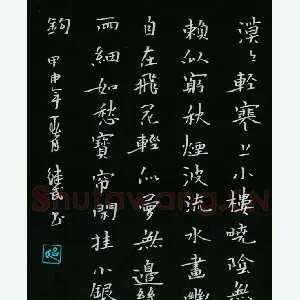 漠〻輕寒上小樓曉陰無
賴似窮秋煙波流水畫
自在飛花輕似夢無邊絲
雨細如愁寶帘閑挂小銀
鈎 甲申年
Shufawang.CN